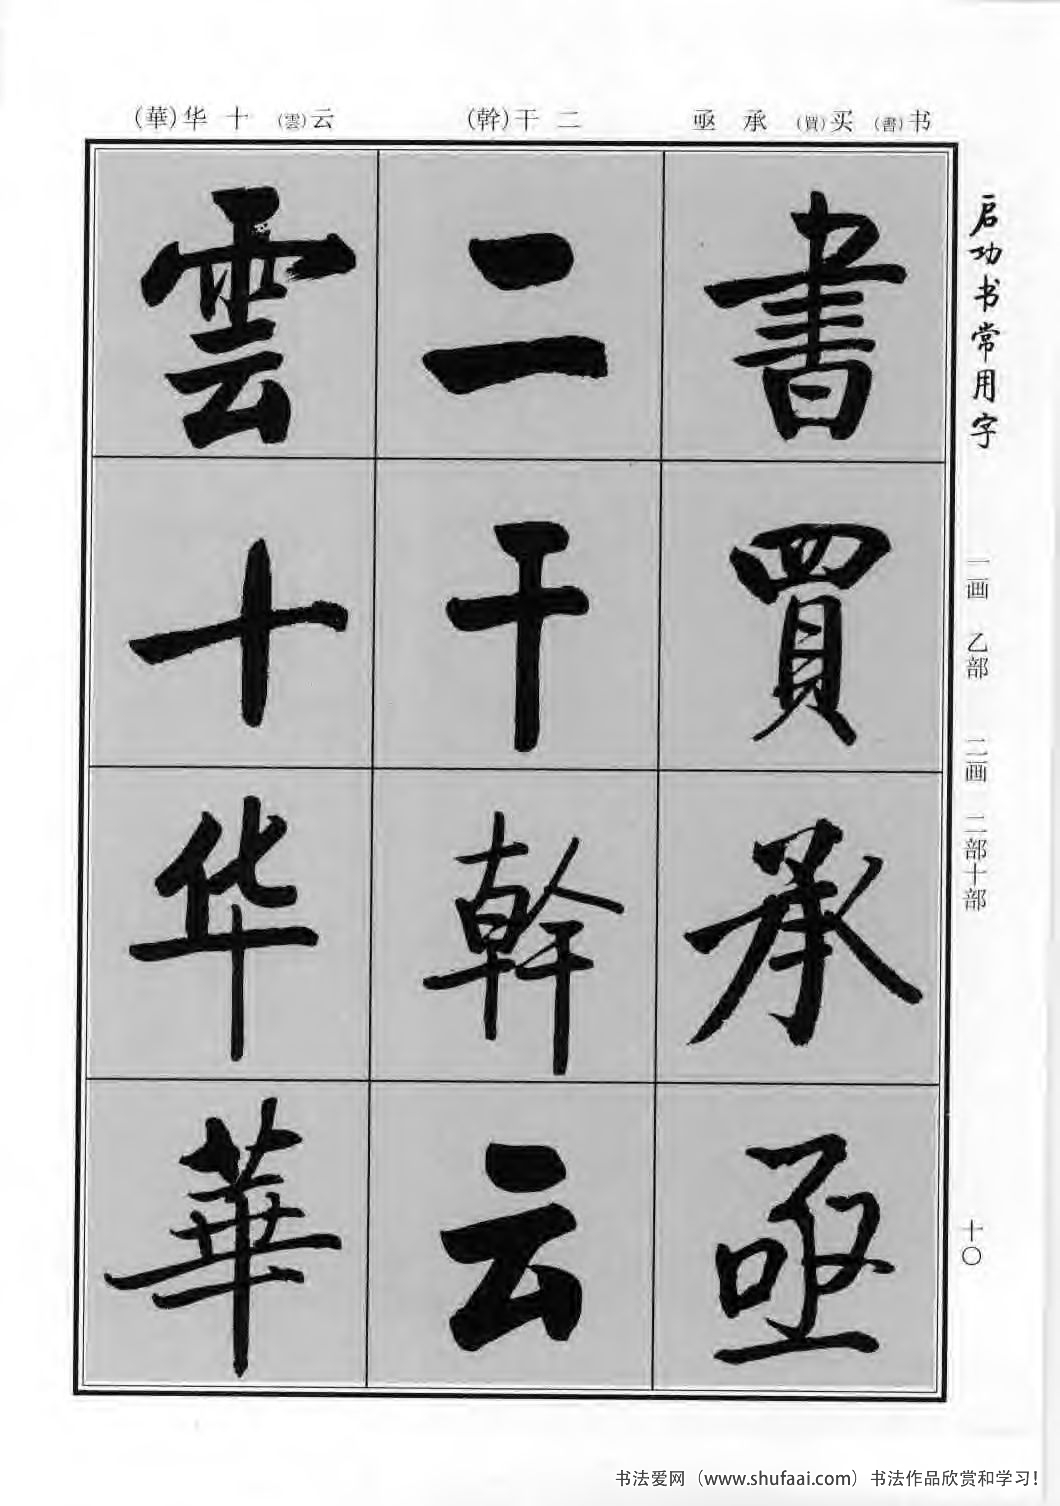 启功书常用字
一画 乙部 二画 二部十部
十〇
书(書) 买(買) 承 亟
二 干(幹)
云(雲) 十 华(華)
書買承亟
二干幹云
雲十华華
书法爱网（www.shufaai.com）书法作品欣赏和学习！